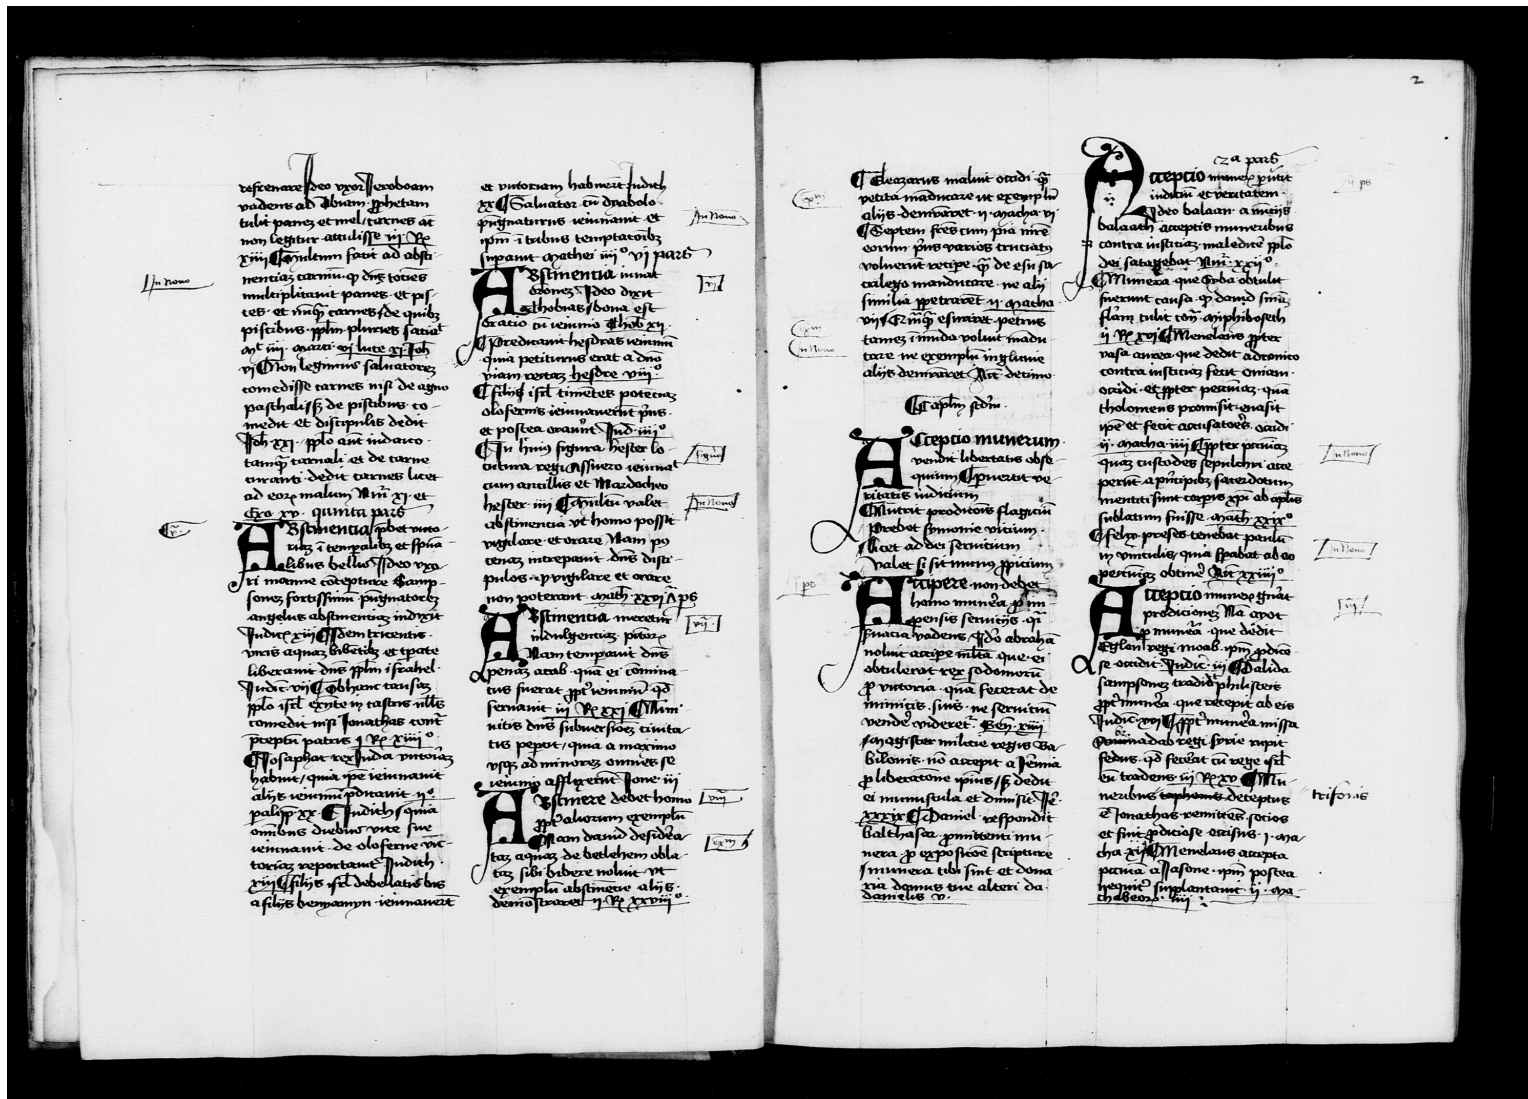 refrenare Ideo vxor Ieroboam
vadens ad Abiam prophetam
tulit panes et mel carnes aut
non legitur attulisse iij Rꝝ
xiiij ¶ Multum facit ad absti
nentiaz carniu q dns tociens
multiplicauit panes et pis
tes et nuq̃ carnes de quibz
piscibus pplm pluries saciat
Mt iiij marci vj luce xj Joh
vj ¶ Non legimus saluatorez
comedisse carnes nisi de agno
paschali sz de piscibus co-
medit et discipulis dedit
Joh xxj pplo aut iudaico
tamq̃ carnali et de carne
curanti dedit carnes licet
ad eorz malum Nui xj et
Exo xv quinta pars
ABstinentia prbet victo-
riaz i temporalibz et spua-
libus bellis Ideo vxo-
ri manue concepture samp-
sonez fortissimu pugnatorez
angelus abstinenciaz indixit
Iudic xiij ¶ Idem tricentis
viris aquaz bibetibz et tpate
liberauit dns pplm israhel
Iudic vij ¶ Ob hanc causaz
pplo isrl exnte in castris nulls
comedit nisi Ionathas contr
preceptu patris j Rꝝ xiiij°
¶ Iosaphat rex Iudea victoriaz
habuit quia ipe ieiunauit
aliis ieiuniu pdicauit ij°
palipp xx ¶ Judith quia
omibus diebus vite sue
ieiunauit de oloferne vic-
toriaz reportauit Judith
xiij ¶ filijs isrl debellatis bis
a filijs benyamyn ieiunauert
In nono
v
et victoriam habuert Judith
xx ¶ Saluator cu dyabolo
pugnaturus ieiunauit et
ipm i tribus temptacoibz
supauit Mathei iiij° vj pars
ABstinentia iuuat
oronez Ideo dixit
Thobias bona est
oracio cu ieiunio Thob xij
¶ Predicauit hesdras ieiuniu
quia petiturus erat a dno
viam rectaz hesdre viij°
¶ filijs isrl timetes potenciaz
olofernis ieiunauerut prius
et postea orauert Jud iiij°
¶ In huius figura hester lo-
cutura regi Assuero ieiunat
cum ancillis et Mardocheo
hester iiij ¶ Multu valet
abstinencia vt homo possit
vigilare et orare Nam post
cenaz increpauit dns disci-
pulos quod vigilare et orare
non poterant Math xxvj
ABstinentia meretur
indulgenciaz pctorz
Nam temperauit dns
penaz acab quia ei comina-
tus fuerat ppt ieiuniu qd
seruauit iij Rꝝ xxj ¶ Nini
uitis dns subuersioez ciuita-
tis pepcit quia a maximo
vsqz ad minorez omnes se
ieiunijs afflixerut Ione iij
ABstinere debet homo
ppt aliorum exemplu
Nam dauid desidera-
taz aquaz de betlehem obla-
taz sibi bibere noluit vt
exemplu abstinecie alijs
demostraret ij Rꝝ xxviij°
In Nono
vj
figura
In Nono
vij
viij
exm
2
¶ Eleazarus maluit occidi q̃
vetita maducare ut exemplu
alijs demraret ij Macha vj
¶ Septem frẽs cum pia mre
eorum prius varios cruciatus
voluerut recipe q̃ de esu sa-
crilego manducare ne alij
similia ppetraret ij Macha
vij ¶ Cũq̃ esuriret petrus
tamen imuda voluit madu
care ne exemplu ingluuie
alijs demraret Act decimo
Caplm scdm
ACceptio munerum
vendit libertatis obse-
quium ¶ Peruertit ve-
ritatis iudicium
¶ Nutrit proditois flagiciu
Prebet symonie vicium
Licet ad dei seruicium
Valet si sit munus ppicium
ACcipere non debet
homo munera p im-
pensis seruicijs q
gracia vadens Ideo abraha
noluit accipe mlta que ei
obtulerat rex sodomoru
p victoria qua fecerat de
inimicis suis ne seruiciu
vendere videretur Gen xiiij
¶ Magister milicie regis Ba-
bilonis no accepit a Jeremia
p liberatone ipius sz dedit
ei munuscula et dimisit Jere
xxxix ¶ Daniel respondit
balthasar pmittenti mu-
nera p exposicoe scripture
munera tibi sint et dona-
ria domus tue alteri da
danielis v
exm
exm
In nono
2a pars
ACceptio munerz puertit
iudiciu et veritatem
Ideo balaam a nucijs
balaach acceptis muneribus
contra iusticiaz maledicere pplo
dei satagebat Nui xxij°
¶ Munera que Syba obtulit
fuerunt causa quod dauid snam
flam tulit contra Miphiboseth
ij Rꝝ xvj ¶ Menelaus ppter
vasa aurea que dedit adronico
contra iusticiaz fecit oniam
occidi et ppter pecuniaz qua
tholomeus promisit euasit
ipe et fecit accusatores occidi
ij Macha iiij ¶ Ppter pecuniaz
quaz custodes sepulchri acce
perut a principibz sacerdotum
mentiti sunt corpus xpi ab aplis
sublatum fuisse Math xxix°
¶ felix preses tenebat paulu
in vinculis quia sperabat ab eo
pecuniaz obtinere Act xxiiij°
ACceptio munerz gnat
prodicionez Na ayot
p munera que dedit
Eglon regi moab ipm pdice
se occidit Iudic iij ¶ Dalida
sampsonez tradidit philisteis
ppt munera que recepit ab eis
Iudic xvj ¶ Ppt munera missa
benadab regi syrie rupit
fedus qd fecerat cu rege isrl
eu tradens iij Rꝝ xv ¶ Mu
neribus tryphonis deceptus
e Jonathas remittes socios
et fuit pdiciose occisus j Ma
cha xij ¶ Menelaus accepta
pecuia a Iasone ipm postea
nequit supplantauit ij Ma
chabeorz iiij
ij ps
In nono
In Nono
iij
trifonis